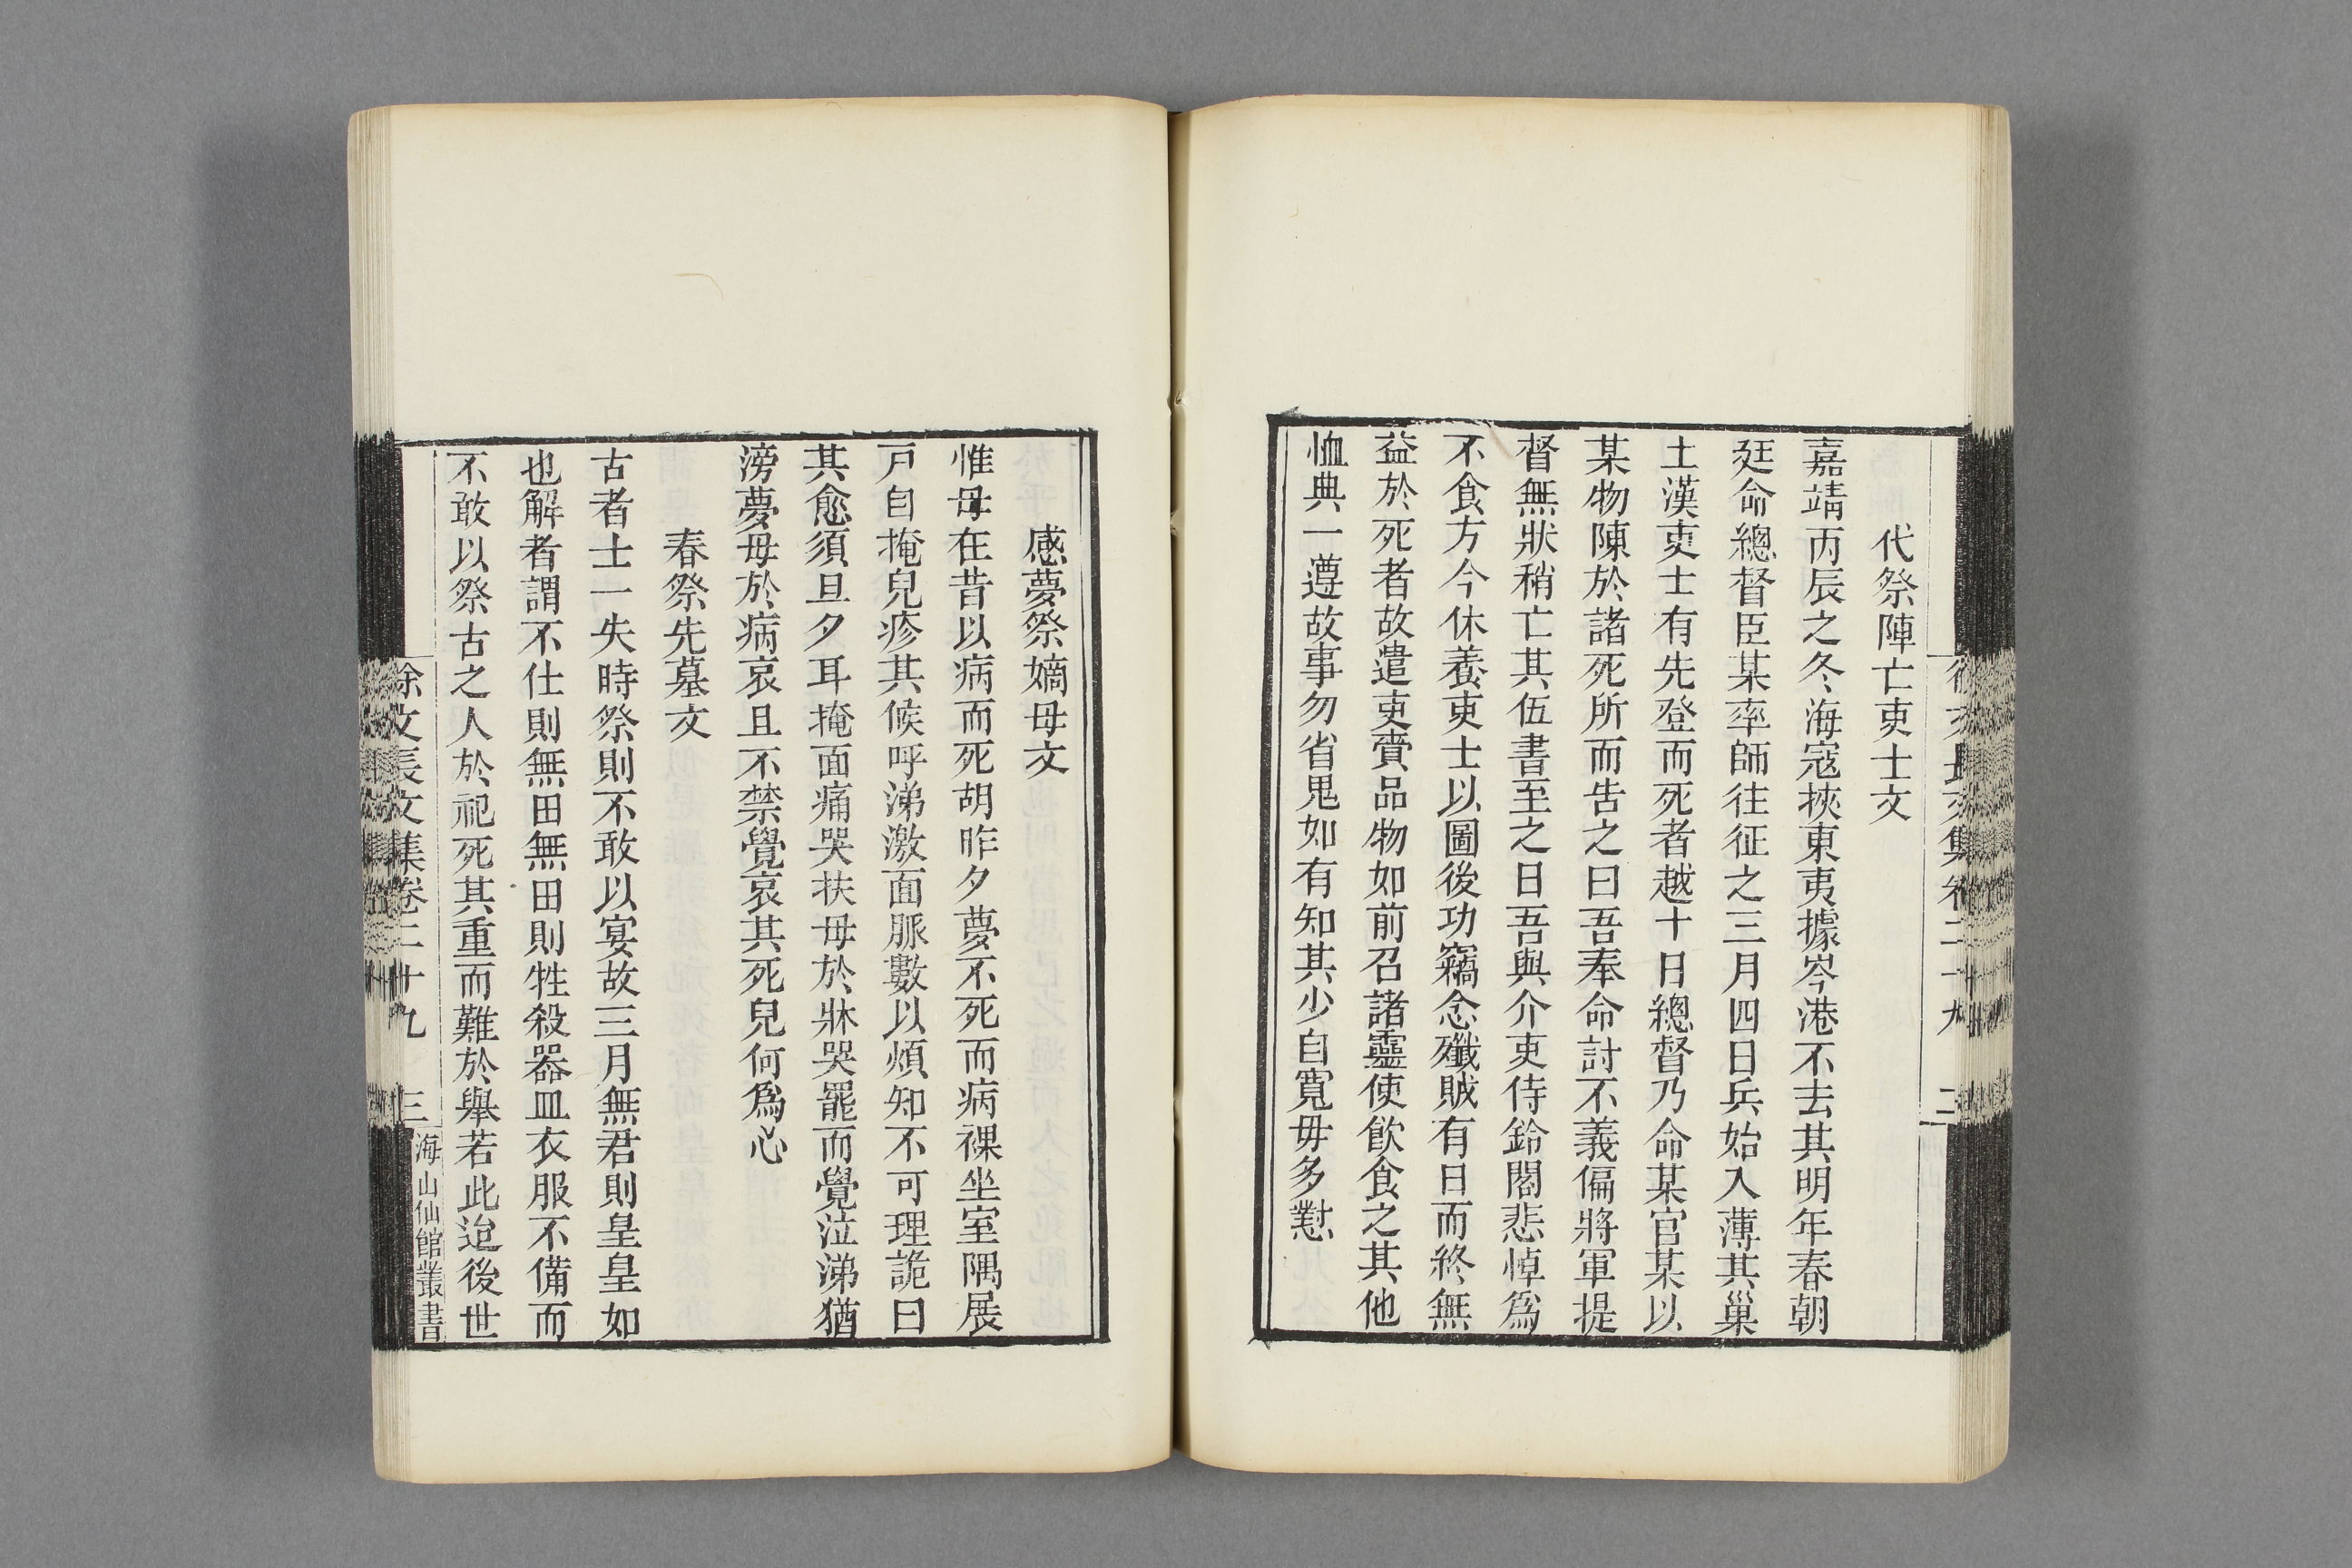 代祭陣亡吏士文
嘉靖丙辰之冬海寇挾東夷據岑港不去其明年春朝
廷命總督臣某率師往征之三月四日兵始入薄其巢
土漢吏士有先登而死者越十日總督乃命某官某以
某物陳於諸死所而告之曰吾奉命討不義偏將軍提
督無狀稍亡其伍書至之日吾與介吏侍鈴閣悲悼爲
不食方今休養吏士以圖後功竊念殲賊有日而終無
益於死者故遣吏賷品物如前召諸靈使飲食之其他
恤典一遵故事勿省鬼如有知其少自寬毋多懟
徐文長文集卷二十九 二
感夢祭嫡母文
惟母在昔以病而死胡昨夕夢不死而病裸坐室隅展
戸自掩兒疹其候呼涕激面脈數以煩知不可理詭曰
其愈須旦夕耳掩面痛哭扶母於牀哭罷而覺泣涕猶
滂夢母於病哀且不禁覺哀其死兒何爲心
春祭先墓文
古者士一失時祭則不敢以宴故三月無君則皇皇如
也解者謂不仕則無田無田則牲殺器皿衣服不備而
不敢以祭古之人於祀死其重而難於舉若此迨後世
徐文長文集卷二十九 三 海山仙館叢書